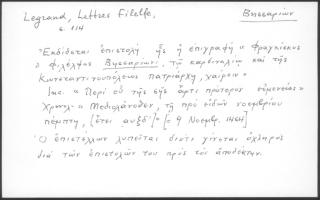 Legrand, Lettres Filelfe,
Βησσαρίων
σ. 114
"Ἐκδίδεται ἐπιστολὴ ἧς ἡ ἐπιγραφὴ "Φραγκίσκος
ὁ Φιλέλφος Βησσαρίωνι, τῷ καρδιναλίῳ καὶ τῆς
Κωνσταντινουπόλεως πατριάρχῃ, χαίρειν"
Inc. "Περὶ οὗ τῆς σῆς ἄρτι πρότερον
Χρον.- "Μεδιολάνοθεν, τῇ πρὸ εἰδῶν νοεμβρίου
πέμπτῃ, [ἔτει αυξδ']" [= 9 Νοεμβρ. 1464]
Ὁ ἐπιστέλλων λυπεῖται διότι γίνεται ὀχληρὸς
διὰ τῶν ἐπιστολῶν του πρὸς τὸν ἀποδέκτην.